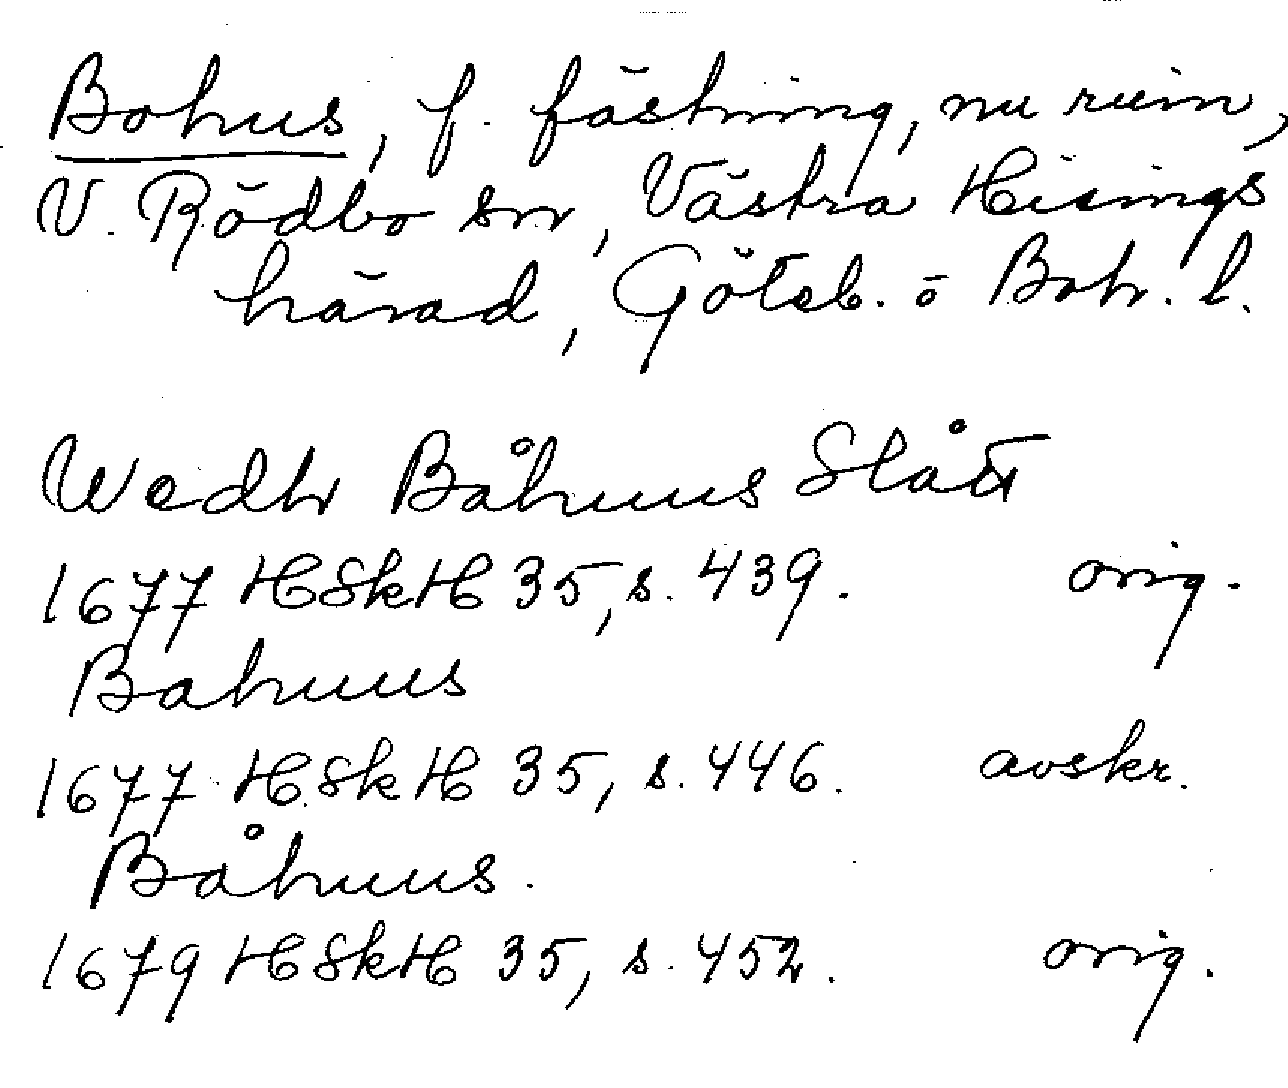 Bohus, f. fästning, nu ruin,
V. Rödbo sn, Västra Hisings
härad, Göteb. o Boh. l.
Wedh Båhuus Slått
1677 HSkH 35, s. 439. orig.
Bahuus
1677 HSkH 35, s. 446. avskr.
Båhuus.
1679 HSkH 35, s. 452. orig.